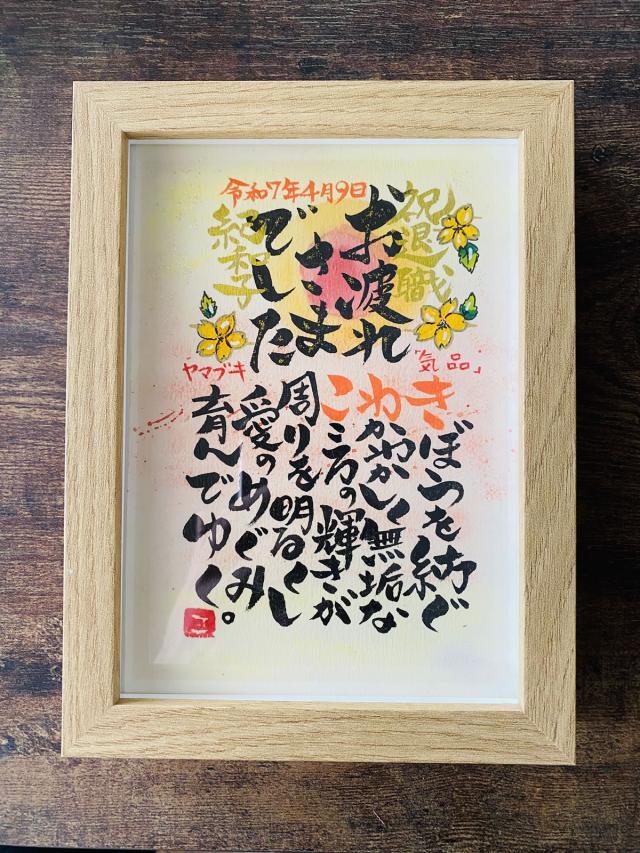 令和7年4月9日
祝退職
お疲れ
さま
でした
紀和子
「気品」
ヤマブキ
きぼうを紡ぐ
わかわかしく無垢な
こころの輝きが
周りを明るくし
愛のめぐみ
育んでゆく。